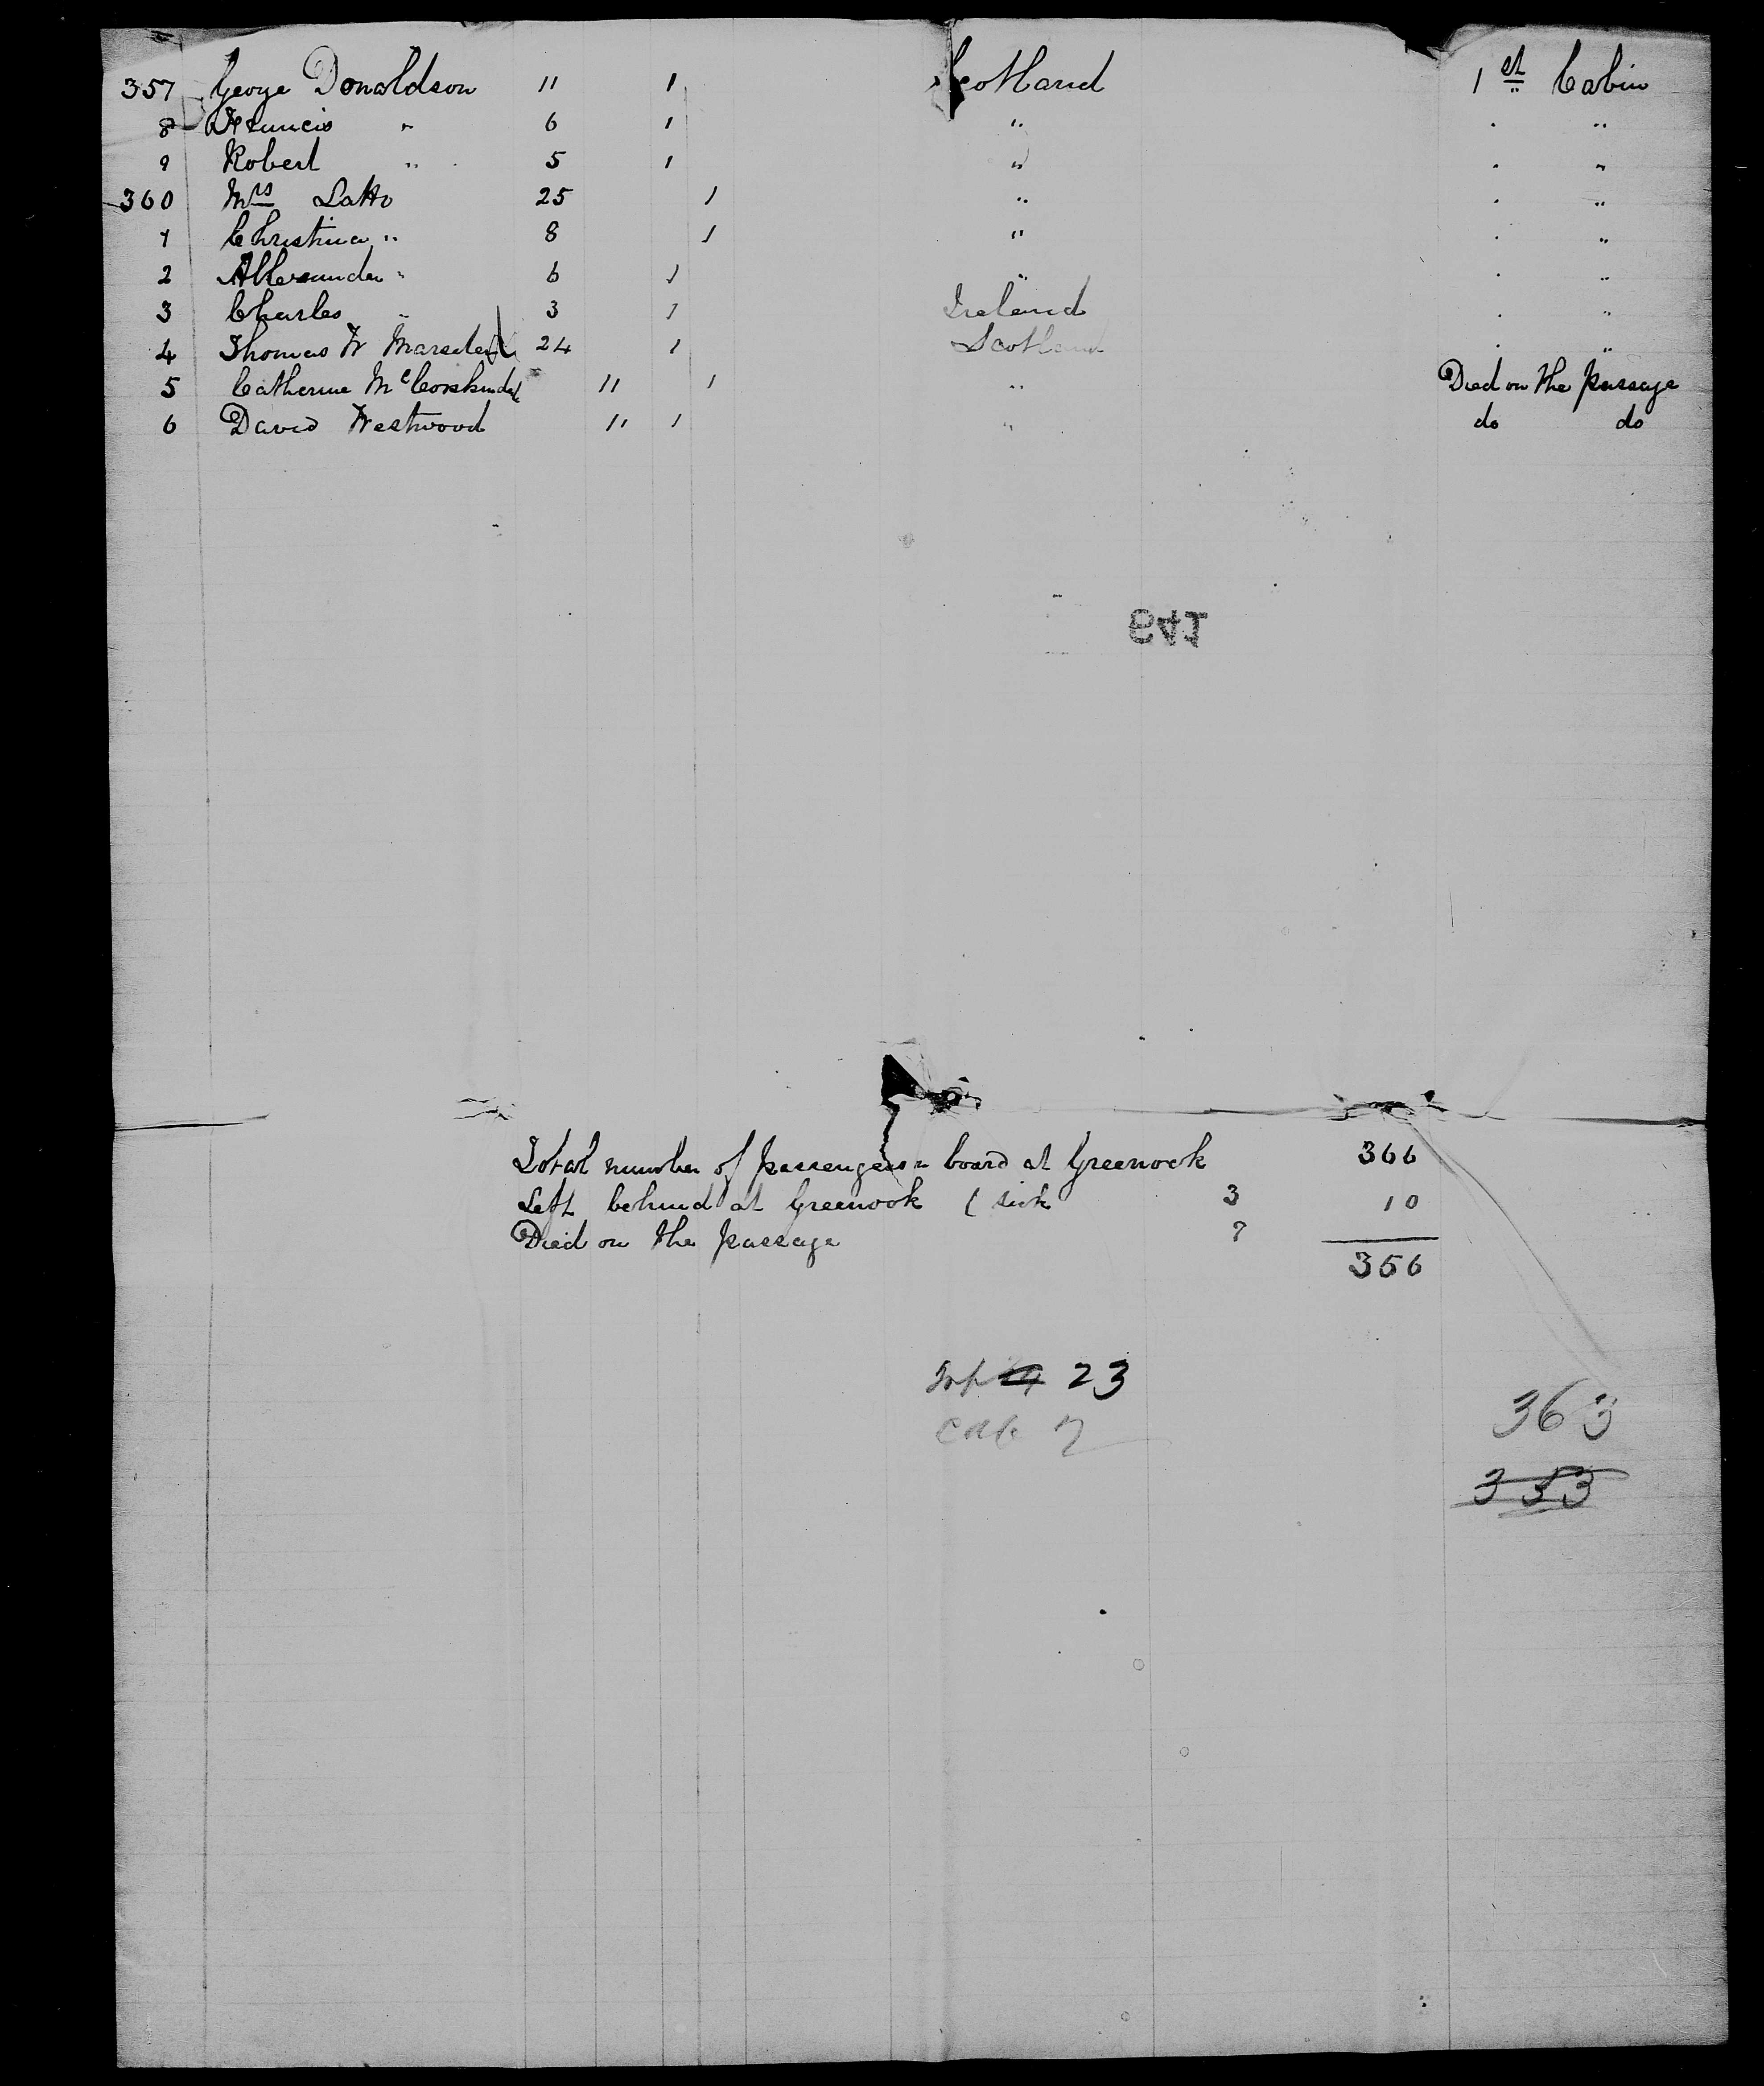 357 George Donaldson 11 1 Scotland 1st Cabin
8 Francis " 6 1 " " "
9 Robert " 5 1 " " "
360 Mrs Latto 25 1 " " "
1 Christina " 8 1 " " "
2 Allexander " 6 1 " " "
3 Charles " 3 1 Ireland " "
4 Thomas W Marsden 24 1 Scotland " "
5 Catherine Mc 11 1 " Died on the passage
6 David Westwood 11 1 " do do
Total number of passengers on board at Greenock 366
Left behind at Greenock ( sick 3 10
Died on the passage 7
356
Inf 23
Cab 7
363
353